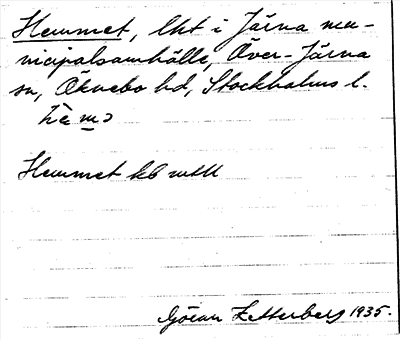 Hemmet, lht i Järna mu-
nicipalsamhälle, Över-Järna
sn, Öknebo hd, Stockholms l.
Hemmet kb
Göran Zetterberg 1935.